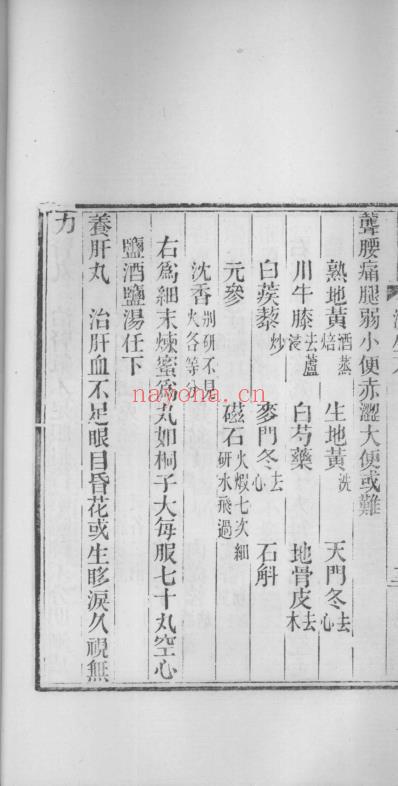 聾腰痛腿弱小便赤澀大便或難
熟地黃酒蒸焙 生地黃洗 天門冬去心
川牛膝去蘆浸 白芍藥 地骨皮去木
白蒺藜炒 麥門冬去心 石斛
元參 磁石火煅七次細研水飛過
沈香別研不見火各等分
右爲細末煉蜜爲丸如桐子大每服七十丸空心
鹽酒鹽湯任下
養肝丸 治肝血不足眼目昏花或生眵淚久視無
力
nayona.cn